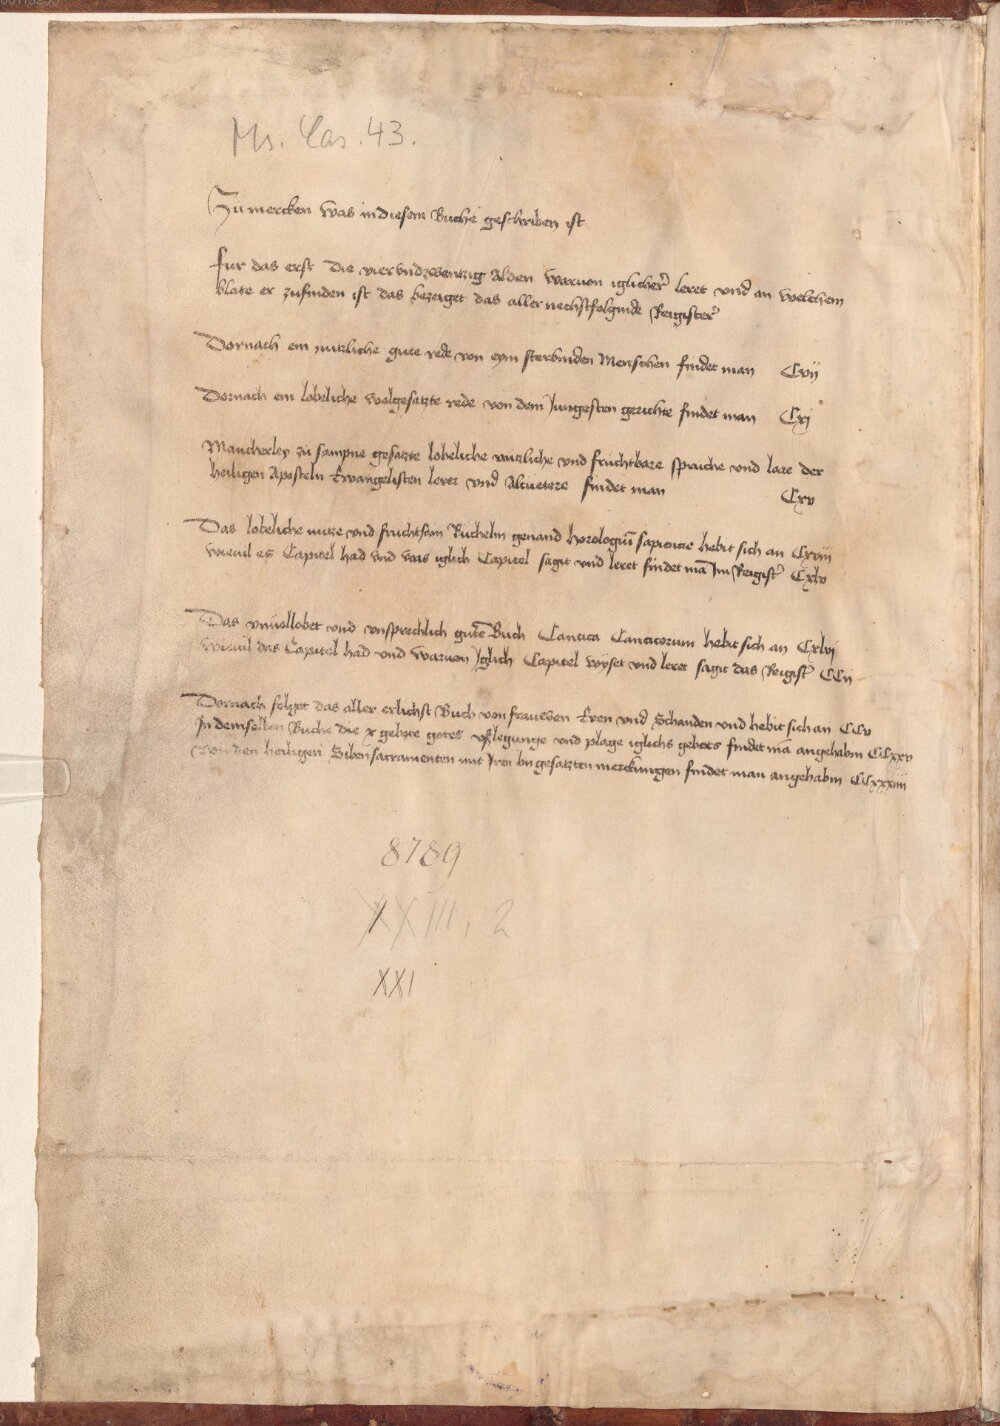 Ms. Cas. 43.
Zu mercken was in diesem Buche geschriben ist
fur das erst die viervndzwentzig Alden warvon iglicher leret vnd an welchem
blate er zufinden ist das bezeiget das aller nechstfolgende Register
Dornach ein nutzliche gute rede von eym sterbinden Menschen findet man Cvij
Dornach ein lobeliche wolgesatzte rede von dem Jungesten gerichte findet man Cxj
Mancherley zu sampne gesatzte lobeliche nutzliche vnd fruchtbare spruche vnd lare der
heiligen Aposteln Ewangelisten lerer vnd Altuetere findet man Cxv
Das lobeliche nutze vnd fruchtsam Buchelin genand horologiu sapiencie hebit sich an Cxxiij
wievil es Capitel had vnd was iglich Capitel sagit vnd leret findet ma Im Register Cxlv
Das vnuollobet vnd vnsprechlich gute Buch Cantica Canticorum hebit sich an Cxlvj
wieuil das Capitel had vnd warvon Jglich Capitel wyset vnd leret sagit das Register CCij
Dornach folget das aller erlichst Buch von frauwen Eren vnd Schanden vnd hebit sich an CCv
In demselben Buche die x gebote gotes vßlegunge vnd plage iglichs gebots findet ma angehabin CCxxv
von den heiligen Siben sacramenten mit Iren in gesatzten merckungen findet man angehabin CCxxxiiij
8789
XXIII, 2
XXI